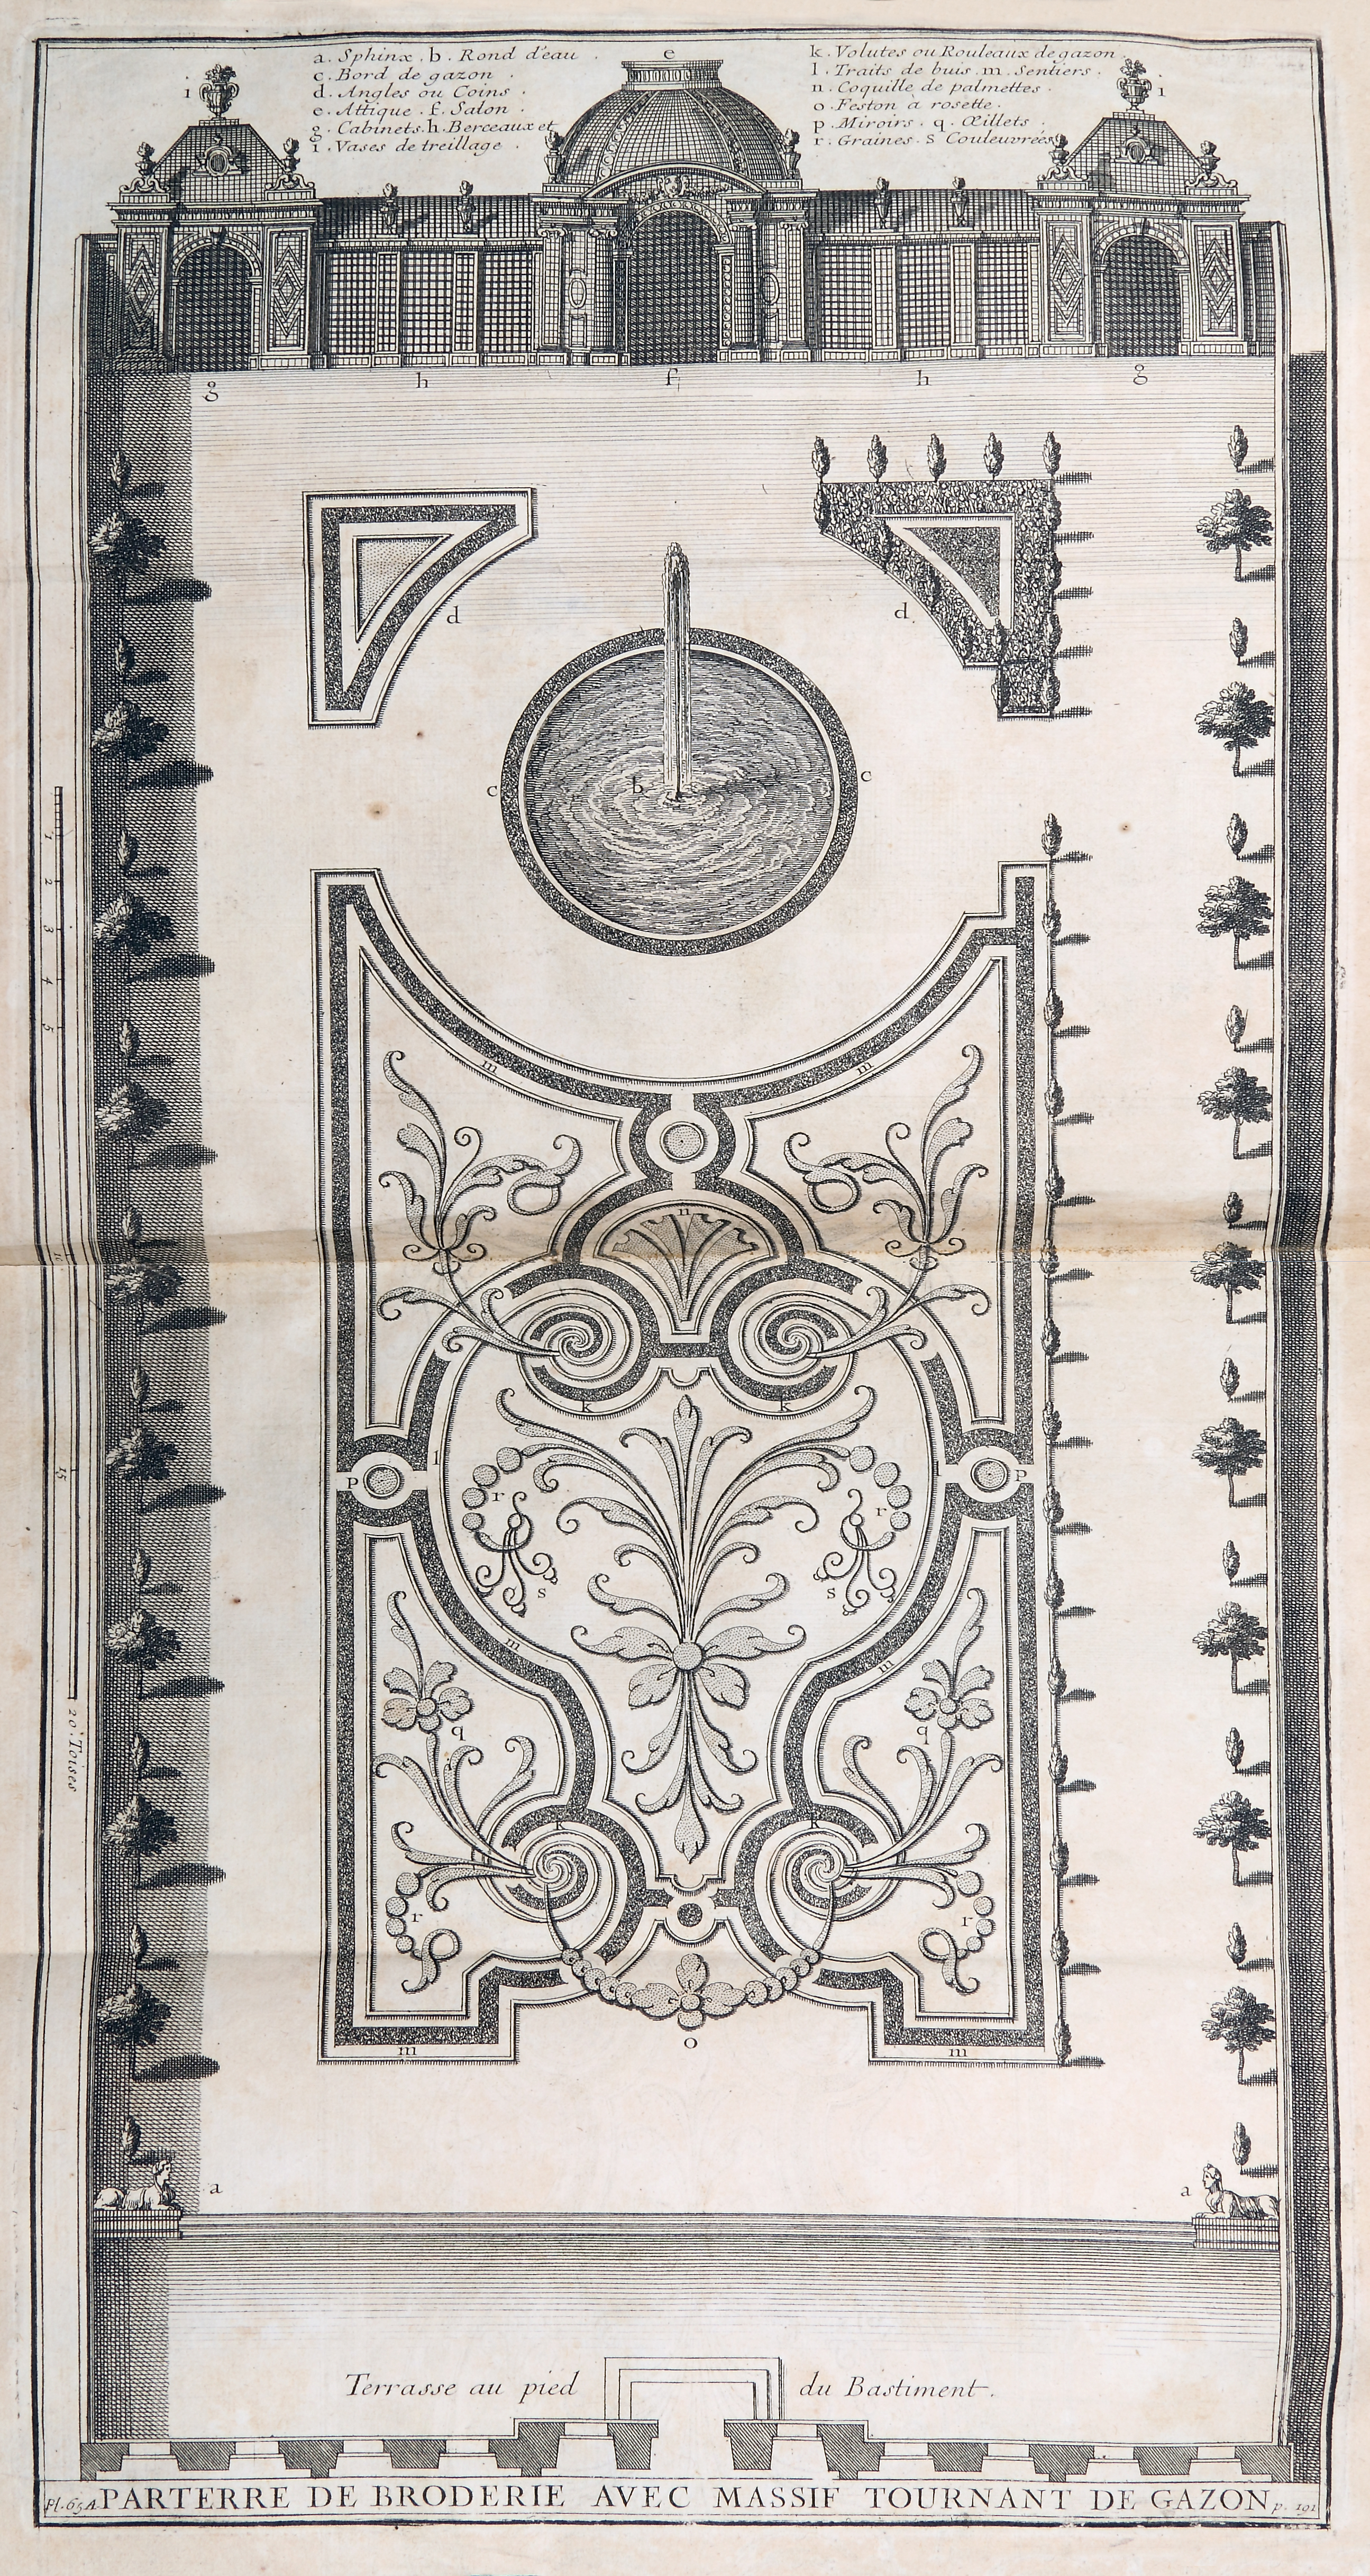 a . Sphinx . b . Rond d'eau .
c . Bord de gazon .
d . Angles ou Coins .
e . Attique . f . Salon .
g . Cabinets . h . Berceaux et
i . Vases de treillage .
k . Volutes ou Rouleaux de gazon .
l . Traits de buis . m . Sentiers .
n . Coquille de palmettes .
o . Feston à rosette .
p . Miroirs . q . Œillets .
r . Graines . s Couleuvrées
e
i
i
g
h
f
h
g
d
d
c
b
c
1
2
3
4
5
m
m
n
k
k
l
p
p
r
r
15
s
s
m
m
q
q
20 Toises
k
k
r
r
o
m
m
a
a
Terrasse au pied du Bastiment .
Pl. 65 A PARTERRE DE BRODERIE AVEC MASSIF TOURNANT DE GAZON p. 191